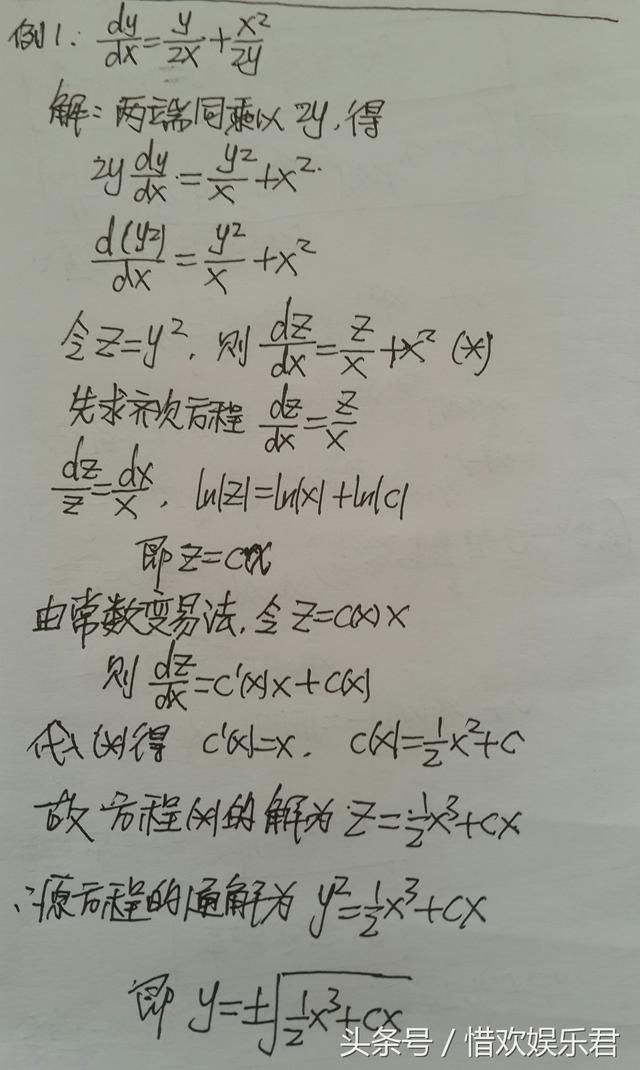 例1: dy/dx = y/2x + x²/2y
解: 两端同乘以 2y, 得
2y dy/dx = y²/x + x².
d(y²)/dx = y²/x + x²
令 z = y², 则 dz/dx = z/x + x² (*)
先求齐次方程 dz/dx = z/x
dz/z = dx/x, ln|z| = ln|x| + ln|c|
即 z = cx
由常数变易法, 令 z = c(x) x
则 dz/dx = c'(x) x + c(x)
代入(*)得 c'(x) = x, c(x) = 1/2 x² + c
故方程(*)的解为 z = 1/2 x³ + cx
∴原方程的通解为 y² = 1/2 x³ + cx
即 y = ±√(1/2 x³ + cx)
头条号 / 惜欢娱乐君